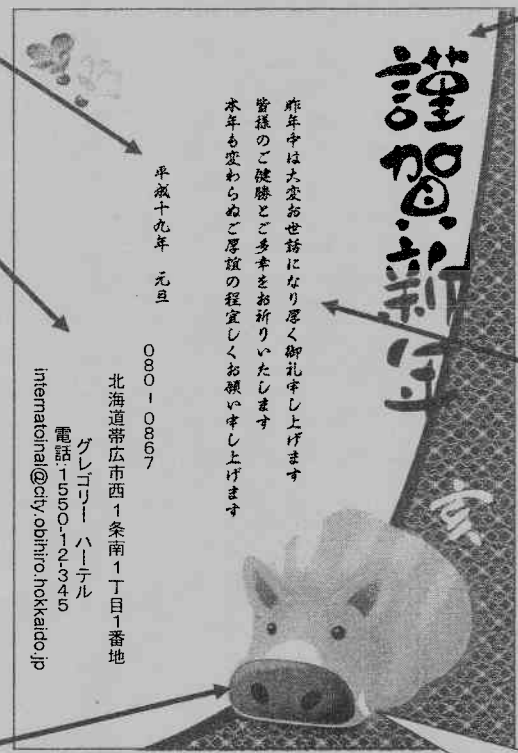 謹賀新年
亥
昨年中は大変お世話になり厚く御礼申し上げます
皆様のご健勝とご多幸をお祈りいたします
本年も変わらぬご厚誼の程宜しくお願い申し上げます
平成十九年 元旦
080-0867
北海道帯広市西1条南1丁目1番地
グレゴリー ハーテル
電話:1550-12-345
internatoinal@city.obihiro.hokkaido.jp